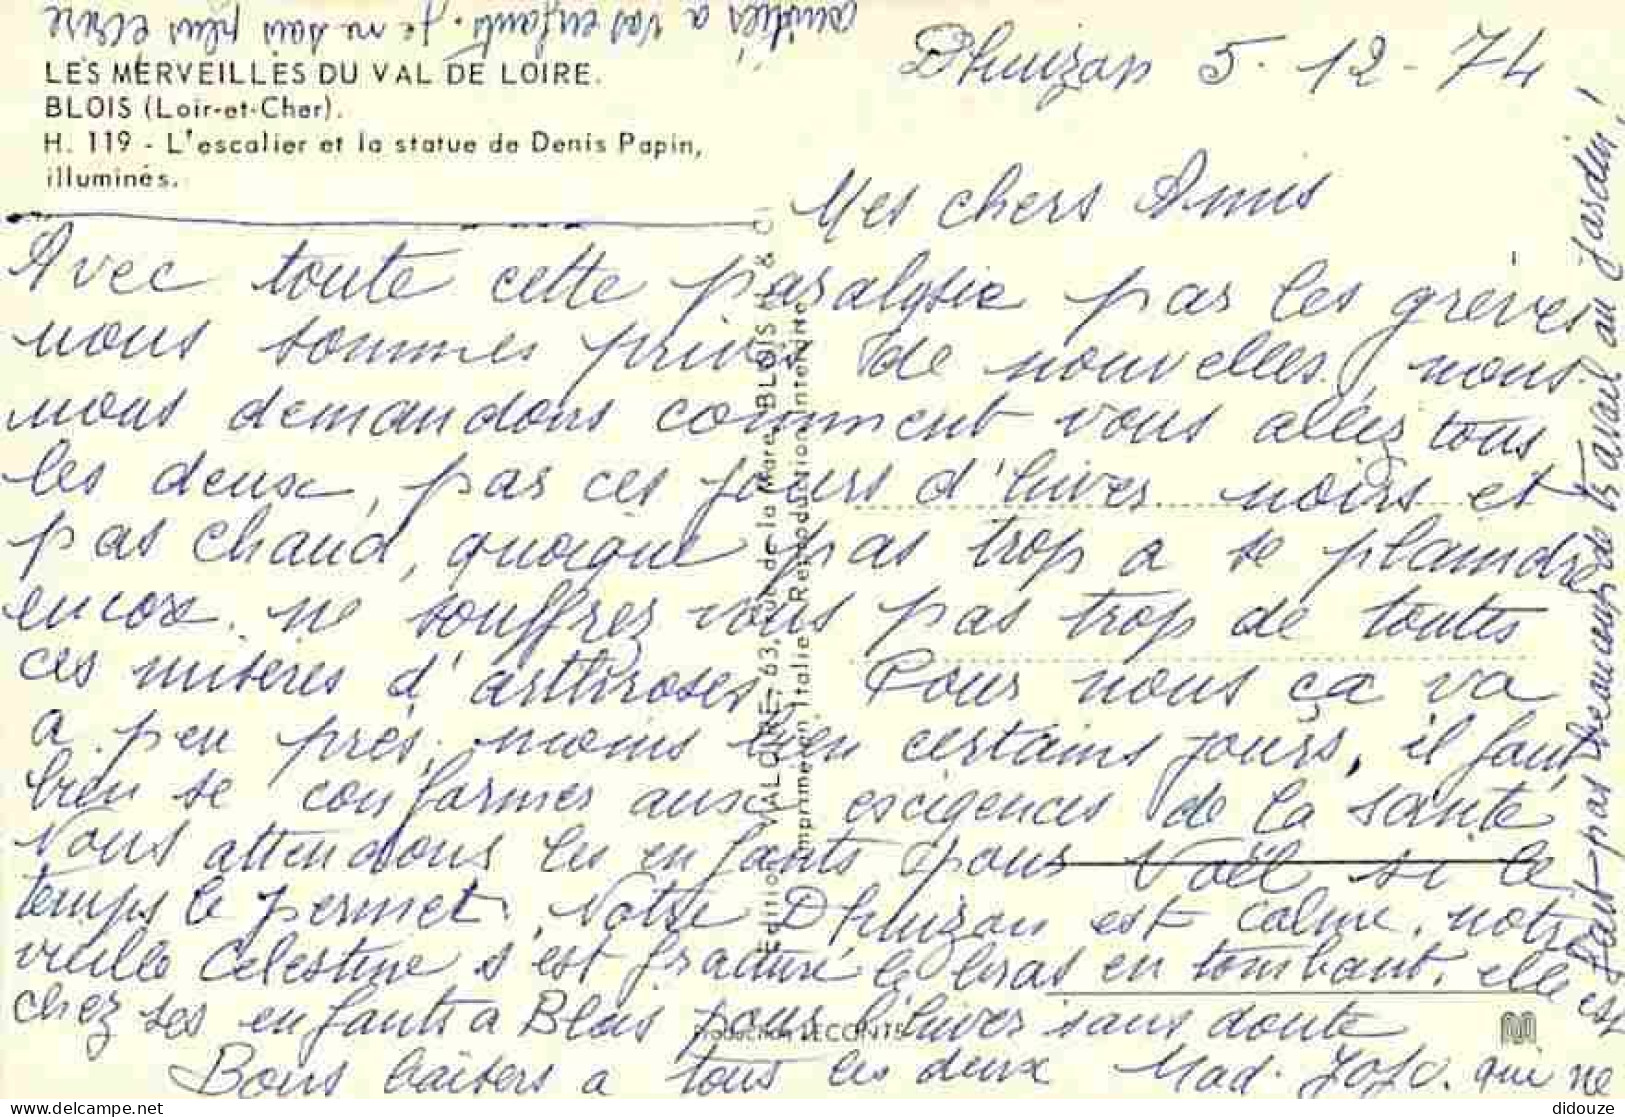 amitiés à vos enfants. je ne sais plus ecrire
LES MERVEILLES DU VAL DE LOIRE.
BLOIS (Loir-et-Cher).
H. 119 - L'escalier et la statue de Denis Papin,
illuminés.
Dhuizon 5-12-74
Mes chers Amis
Avec toute cette paralysie par les greves
nous sommes privés de nouvelles, nous
nous demandons comment vous allez tous
les deux, par ces jours d'hiver noirs et
pas chaud, quoique pas trop a se plaindre
encore. ne souffrez vous pas trop de toutes
ces misères d'arthroses. Pour nous ça va
a peu près, moins bien certains jours, il faut
bien se conformer aux exigences de la santé
Nous attendons les enfants pour Noël si le
temps le permet. Notre Dhuizon est calme, notre
vieille Celestine s'est fracturé le bras en tombant, elle est
chez ses enfants a Blois pour l'hiver sans doute
Bons baisers a tous les deux Mad. JoJo. qui ne
fait pas beaucoup de travail au Jardin!
Éditions VALOIRE, 63, rue de la Mare BLOIS
Imprimé en Italie - Reproduction interdite
Production LECONTE
didouze